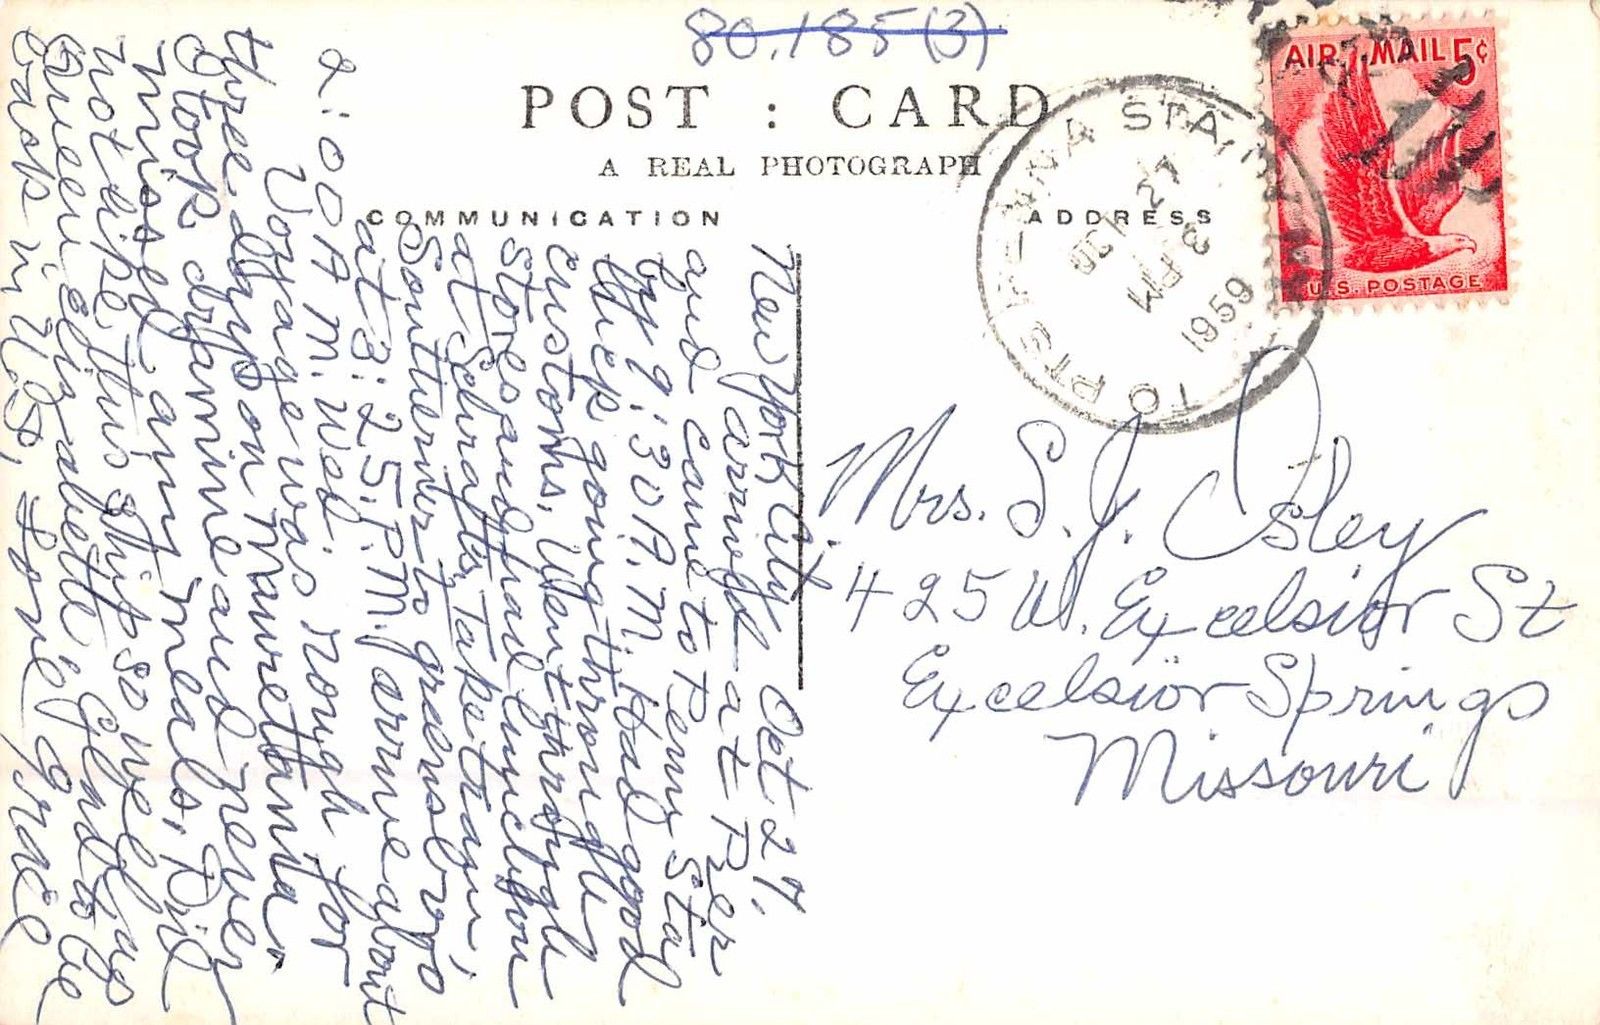 80,185(3)
POST : CARD
A REAL PHOTOGRAPH
COMMUNICATION
ADDRESS
AIR MAIL 5¢
U.S. POSTAGE
STA
OCT 27
3 PM
1959
New York City Oct 27,
arrived at Pier
and came to Penn Sta
by 9:30 A.M. Had good
luck going through
Customs. Went through
stores and had luncheon
at Schrafts. Take train,
Southerner to greensboro
at 3:25 P.M. arrive about
2:00 A M. Wed.
Voyage was rough for
three days on Mauretania.
I took dramine and never
missed am meals. Did
not like this ship so well as
Queen Elizabette. Glad to be
back in U.S, Love Grace
Mrs. S. J. Isley
425 W. Excelsior St
Excelsior Springs
Missouri